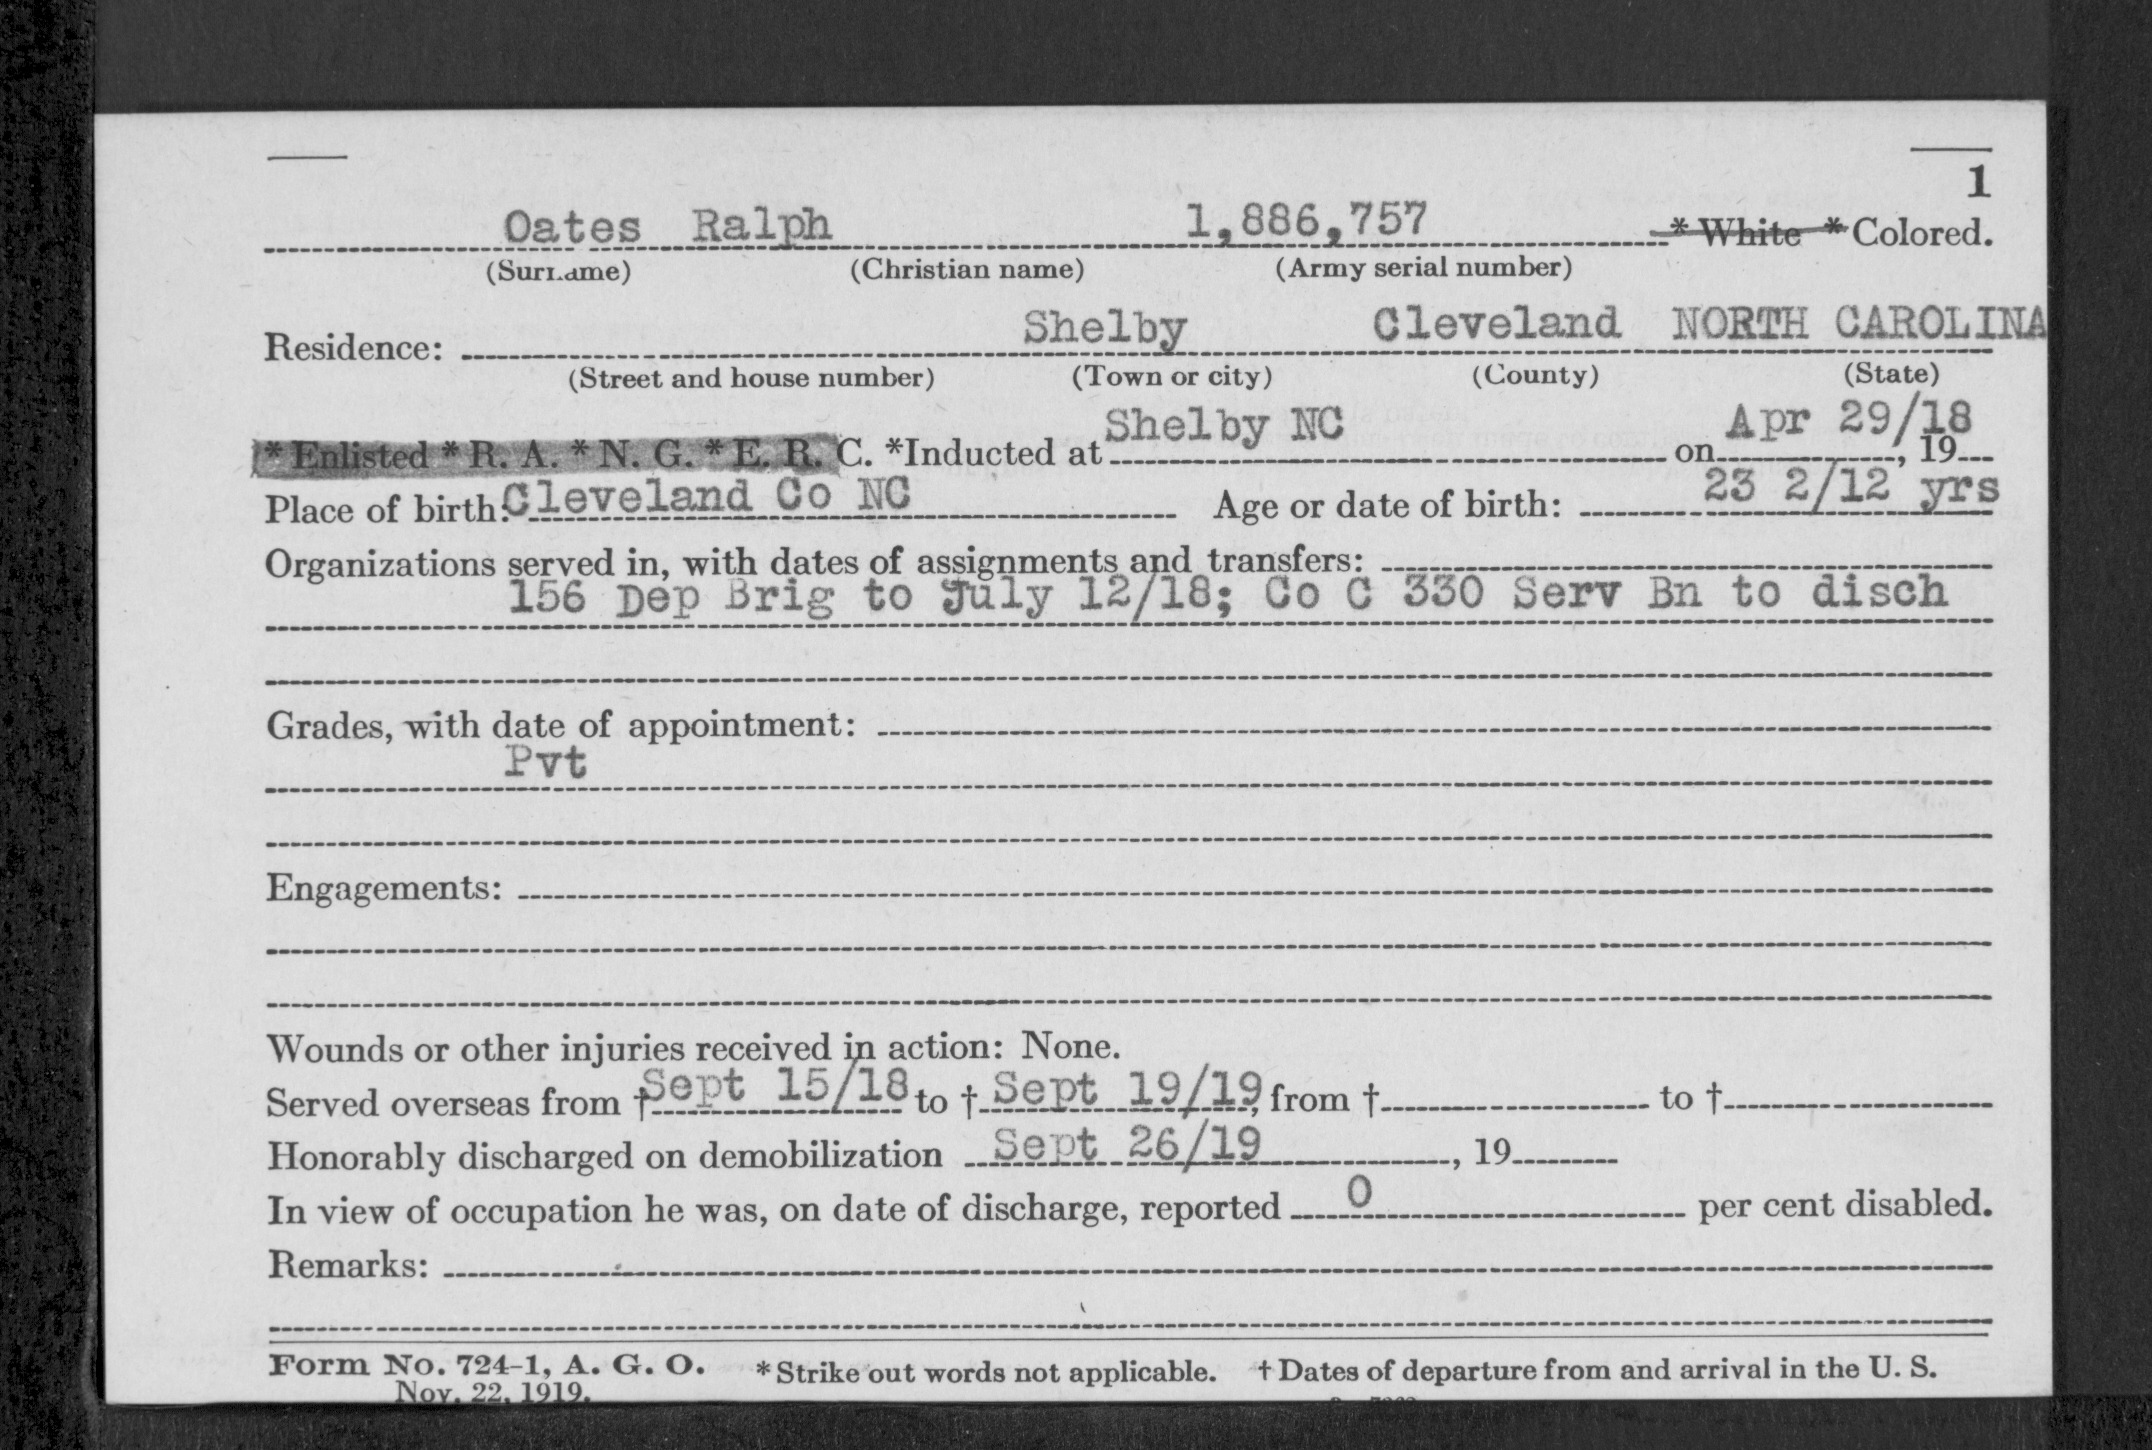 1
Oates Ralph 1,886,757 * White * Colored.
(Surname) (Christian name) (Army serial number)
Shelby Cleveland NORTH CAROLINA
Residence:
(Street and house number) (Town or city) (County) (State)
Shelby NC Apr 29/18
* Enlisted * R. A. * N. G. * E. R. C. *Inducted at on , 19
Place of birth: Cleveland Co NC Age or date of birth: 23 2/12 yrs
Organizations served in, with dates of assignments and transfers:
156 Dep Brig to July 12/18; Co C 330 Serv Bn to disch
Grades, with date of appointment:
Pvt
Engagements:
Wounds or other injuries received in action: None.
Served overseas from † Sept 15/18 to † Sept 19/19, from † to †
Honorably discharged on demobilization Sept 26/19 , 19
In view of occupation he was, on date of discharge, reported 0 per cent disabled.
Remarks:
Form No. 724-1, A. G. O. * Strike out words not applicable. † Dates of departure from and arrival in the U. S.
Nov. 22, 1919.